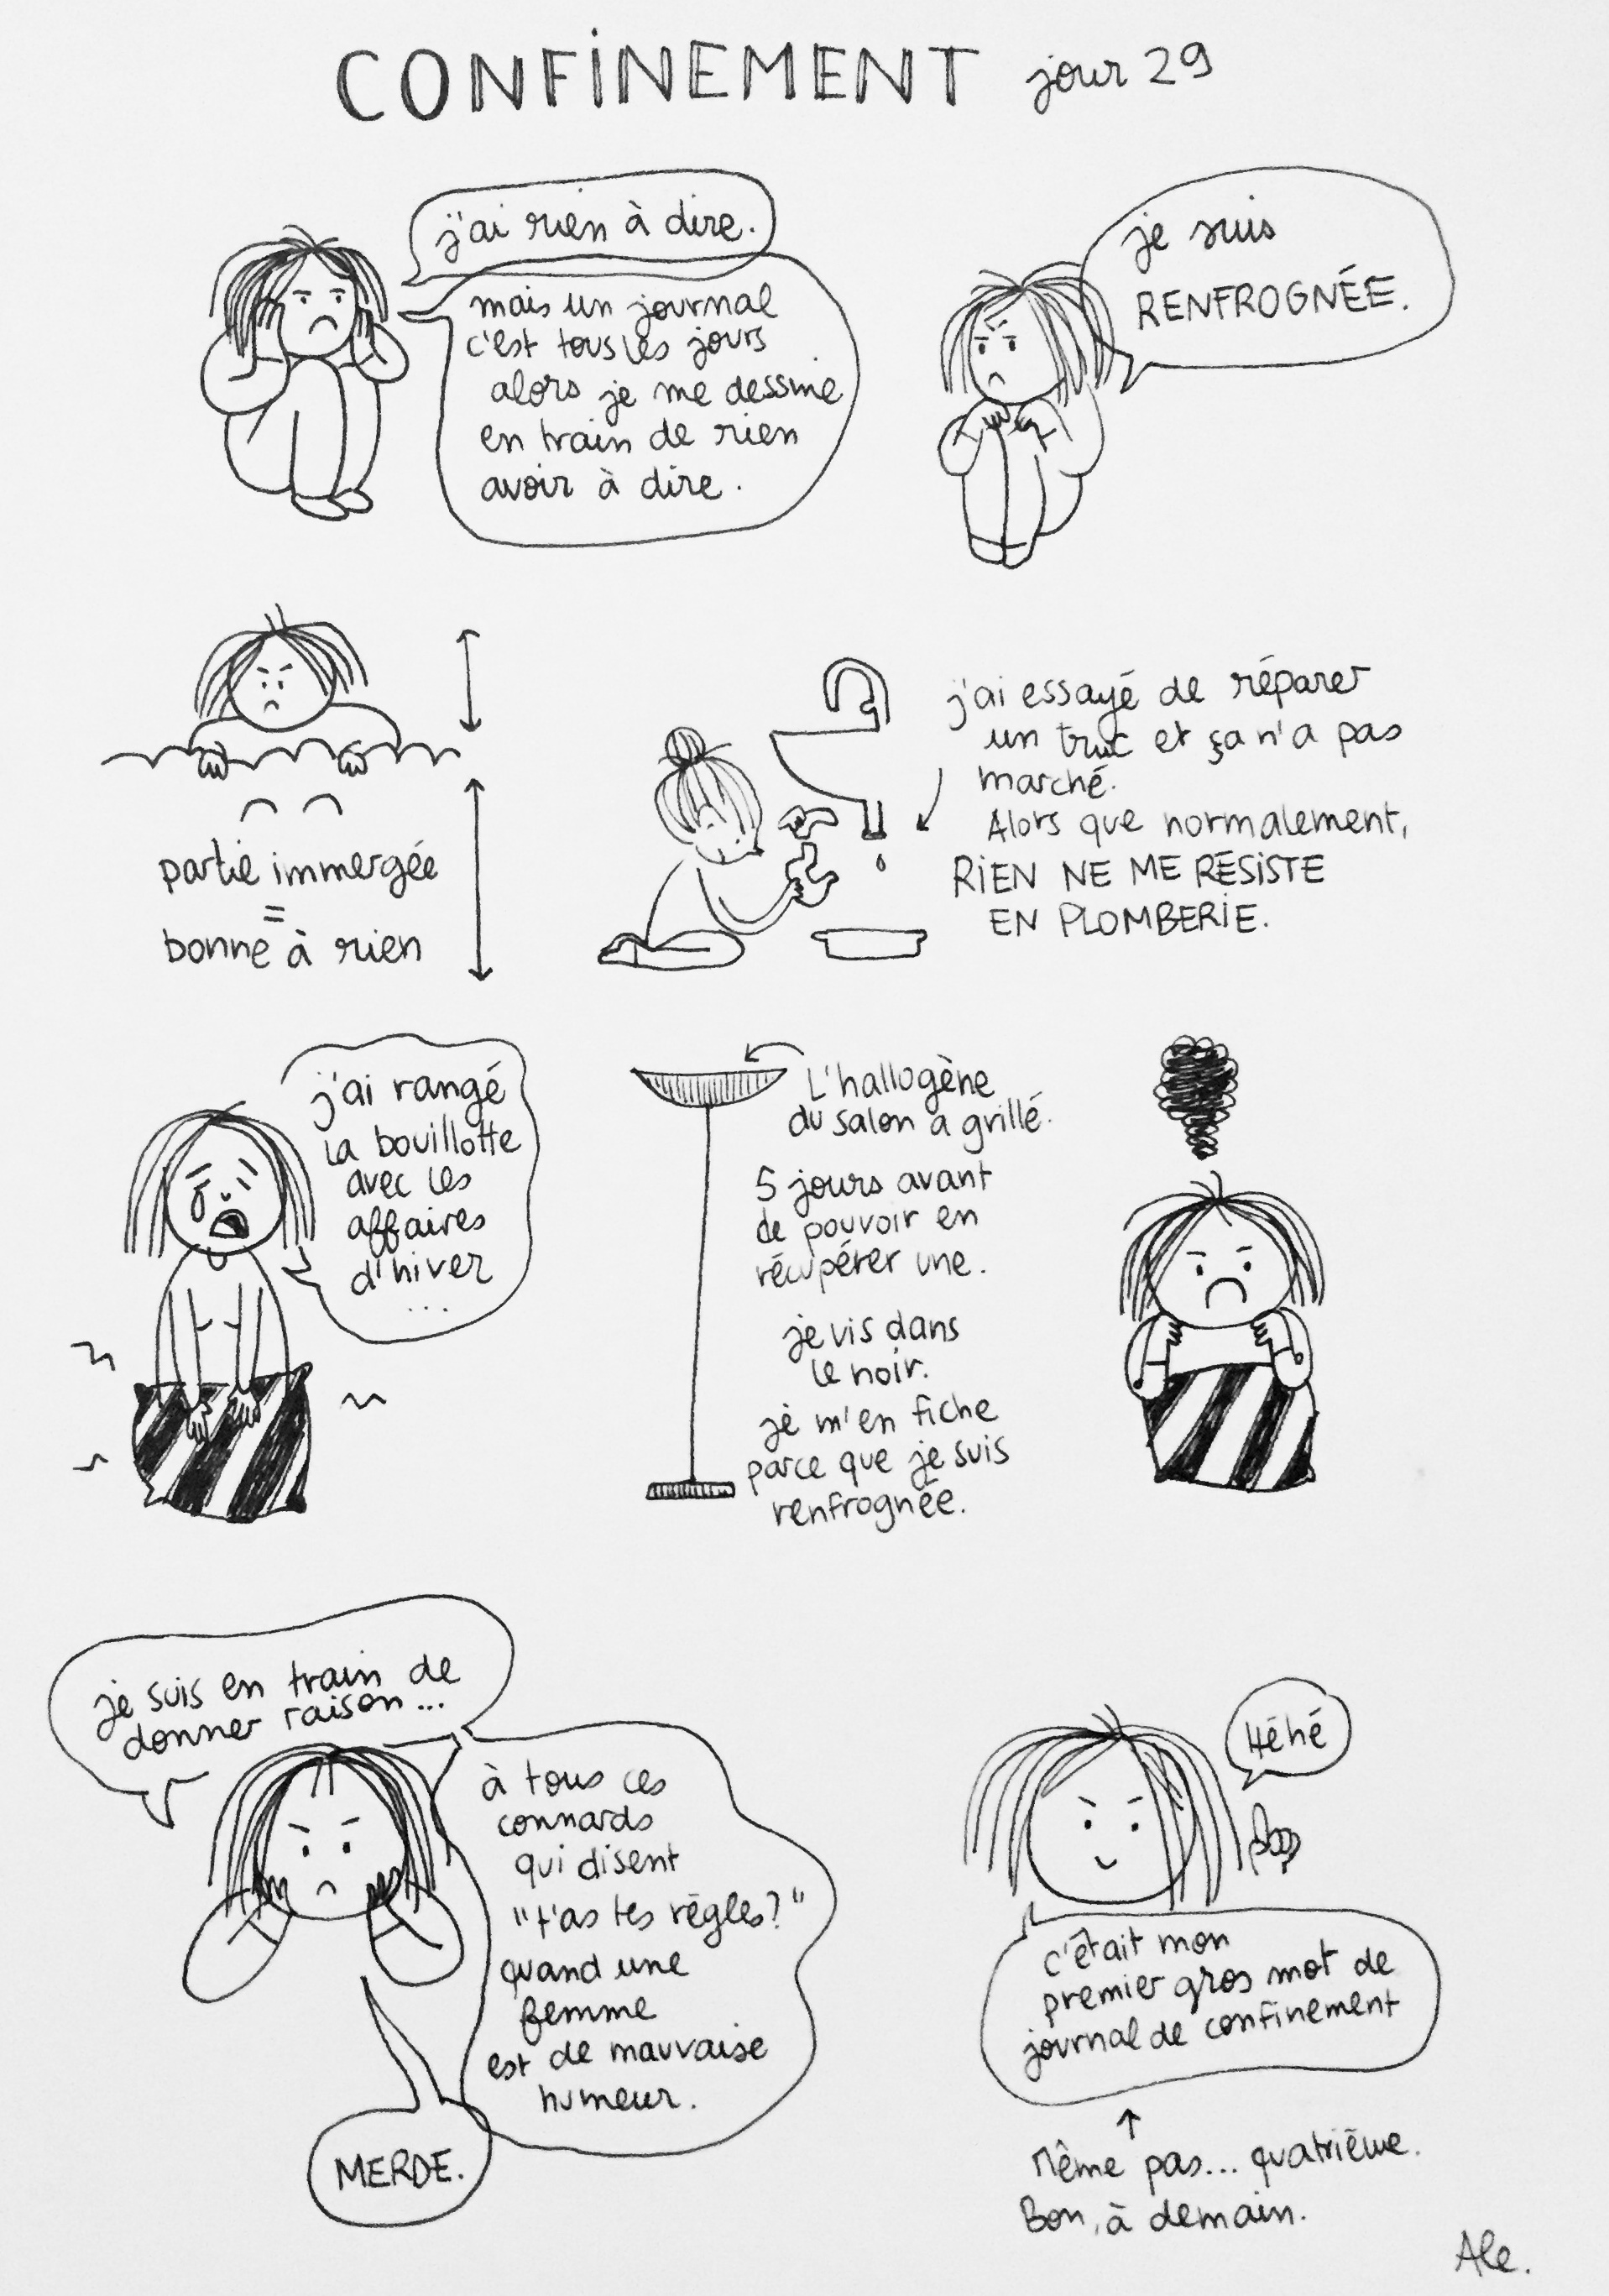 CONFINEMENT jour 29
j'ai rien à dire.
mais un journal
c'est tous les jours
alors je me dessine
en train de rien
avoir à dire.
je suis
RENFROGNÉE.
partie immergée
=
bonne à rien
j'ai essayé de réparer
un truc et ça n'a pas
marché.
Alors que normalement,
RIEN NE ME RÉSISTE
EN PLOMBERIE.
j'ai rangé
la bouillotte
avec les
affaires
d'hiver
...
L'hallogène
du salon a grillé.
5 jours avant
de pouvoir en
récupérer une.
je vis dans
le noir.
je m'en fiche
parce que je suis
renfrognée.
je suis en train de
donner raison...
à tous ces
connards
qui disent
"t'as tes règles?"
quand une
femme
est de mauvaise
humeur.
MERDE.
Héhé
c'était mon
premier gros mot de
journal de confinement
Même pas... quatrième.
Bon, à demain.
Ale.